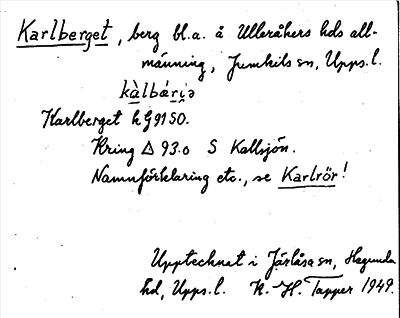 Karlberget, berg bl.a. å Ulleråkers hds all-
männing, Jumkils sn, Upps.l.
kàlbárịə
Karlberget hG9150.
Kring Δ 93.0 S Kallsjön.
Namnförklaring etc., se Karlrör!
Upptecknat i Järlåsa sn, Hagunda
hd, Upps.l. K.-H. Tapper 1949.